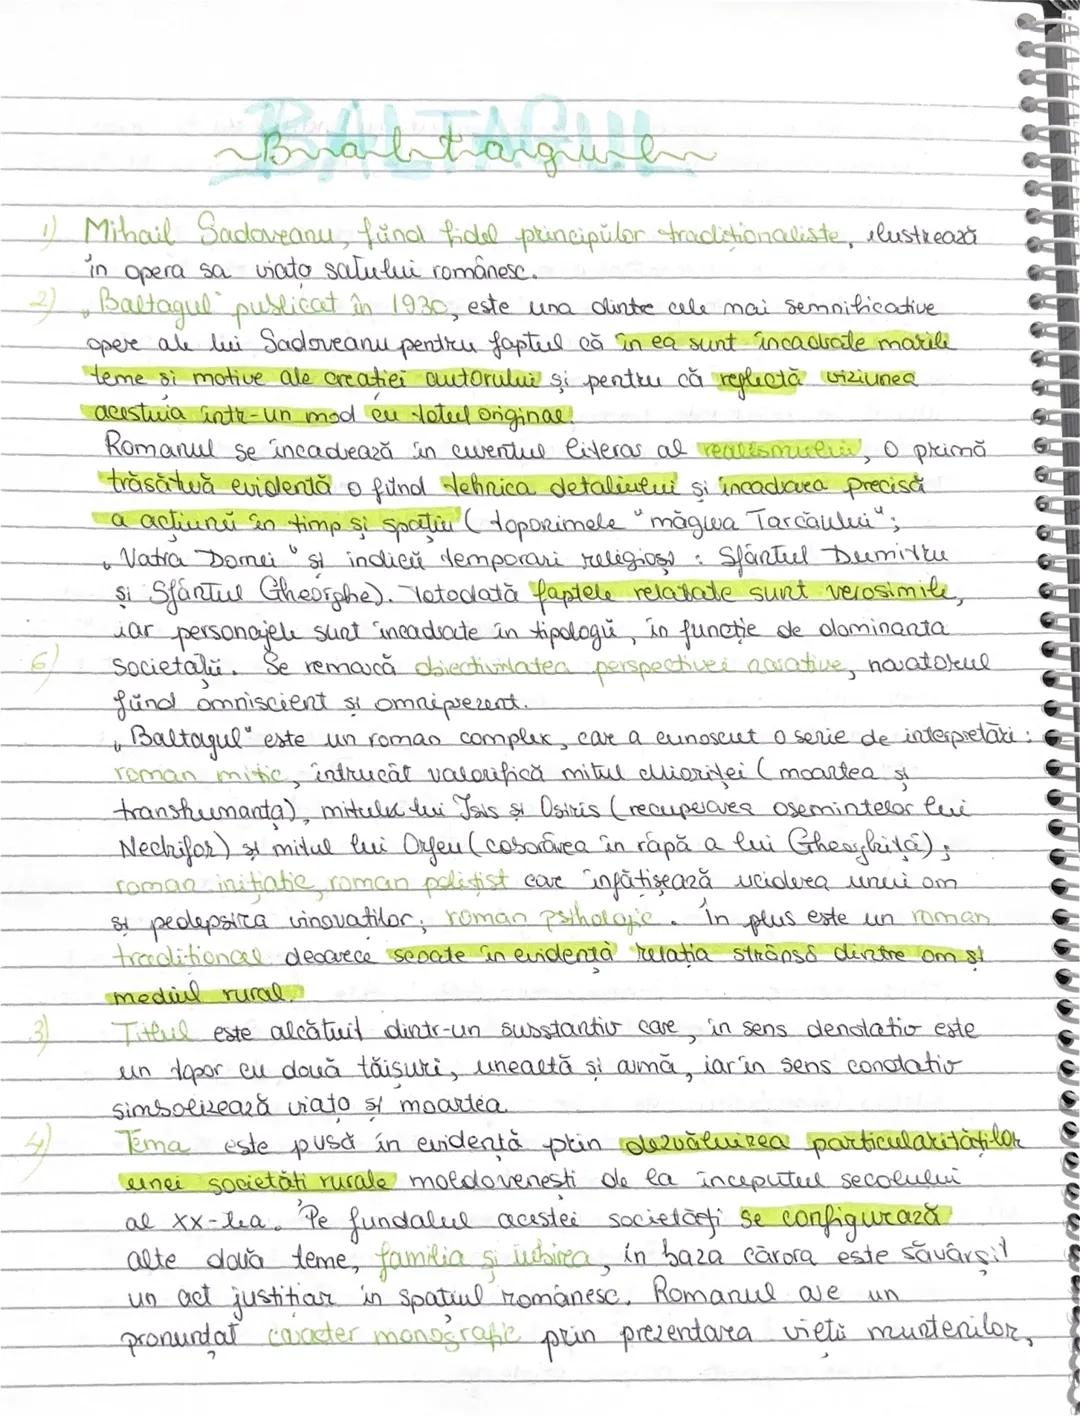 BALTAGUL
Baltagul
1) Mihail Sadoveanu, fiind fidel principiilor tradiționaliste, ilustrează
în opera sa viața satului românesc.
2) „Baltagul" publicat în 1930, este una dintre cele mai semnificative
opere ale lui Sadoveanu pentru faptul că în ea sunt încadrate marile
teme și motive ale creației autorului și pentru că reflectă viziunea
acestuia într-un mod cu totul original.
Romanul se încadrează în curentul literar al realismului, o primă
trăsătură evidentă o fiind tehnica detaliului și încadrarea precisă
a acțiunii în timp și spațiu (toponimele "măgura Tarcăului";
„Vatra Dornei" și indicii temporari religioși: Sfântul Dumitru
și Sfântul Gheorghe). Totodată faptele relatate sunt verosimile,
iar personajele sunt încadrate în tipologii, în funcție de dominanta
6) societății. Se remarcă obiectivitatea perspectivei narative, naratorul
fiind omniscient și omniprezent.
„Baltagul" este un roman complex, care a cunoscut o serie de interpretări:
roman mitic, întrucât valorifică mitul Mioriței (moartea și
transhumanța), mitul lui Isis și Osiris (recuperarea osemintelor lui
Nechifor) și mitul lui Orfeu (coborârea în râpă a lui Gheorghiță);
roman inițiatic, roman polițist care înfățișează uciderea unui om
și pedepsirea vinovaților; roman psihologic. În plus este un roman
tradițional deoarece scoate în evidență relația strânsă dintre om și
mediul rural.
3) Titlul este alcătuit dintr-un susstantiv care, în sens denotativ este
un topor cu două tăișuri, unealtă și armă, iar în sens conotativ
simbolizează viața și moartea.
4) Tema este pusă în evidență prin dezvăluirea particularităților
unei societăți rurale moldovenești de la începutul secolului
al XX-lea. Pe fundalul acestei societăți se configurază
alte două teme, familia și iubirea, în baza cărora este săvârșit
un act justițiar în spațiul românesc. Romanul are un
pronunțat caracter monografic prin prezentarea vieții muntenilor,